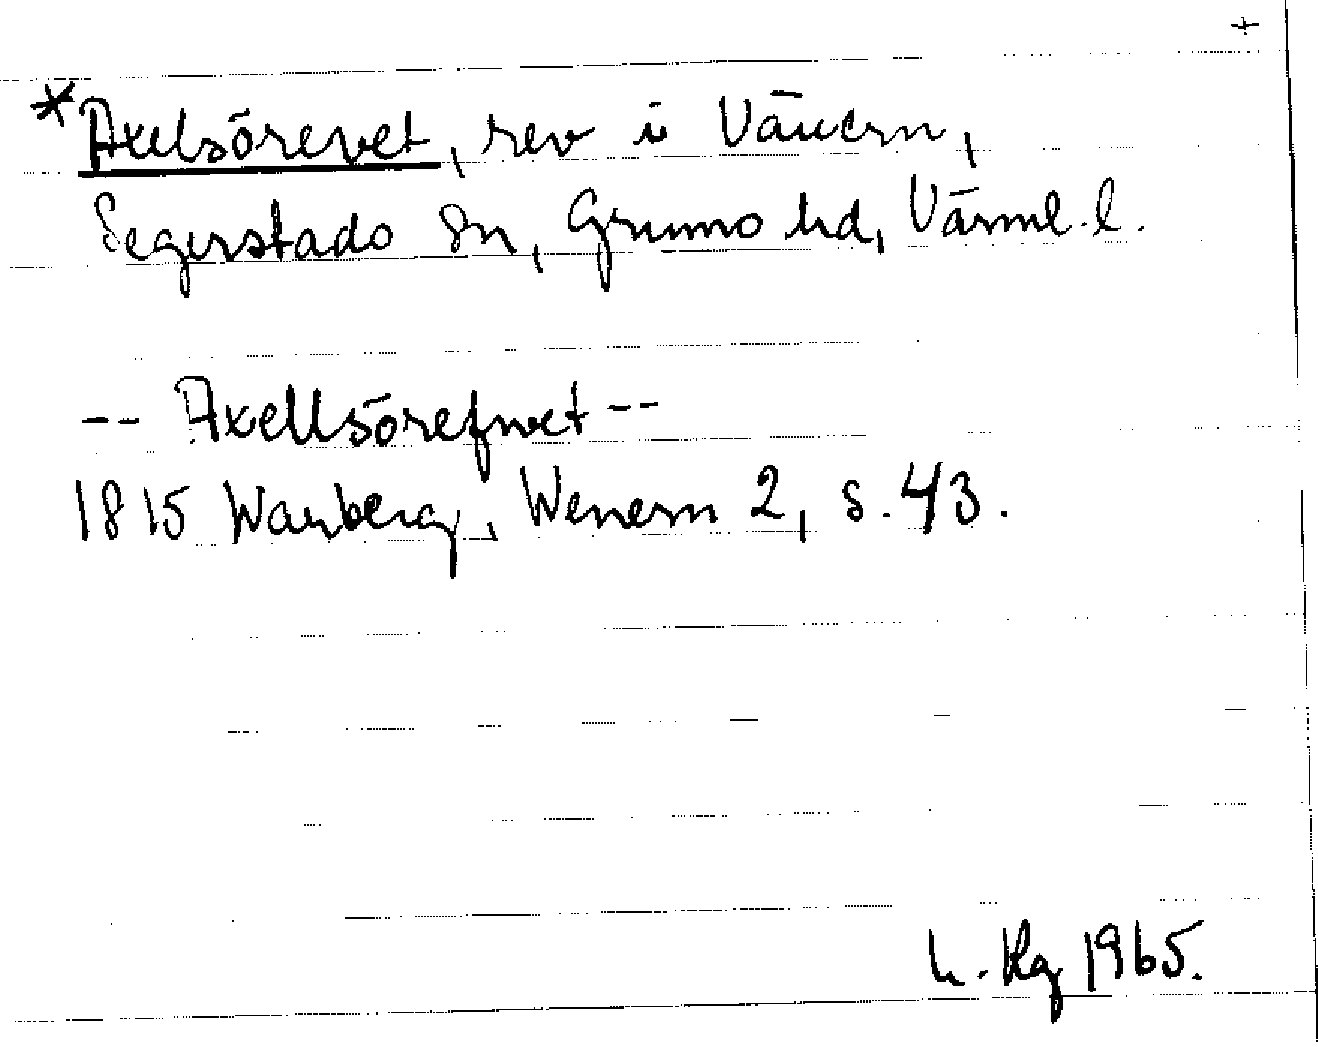 +
*Axelsörevet, rev i Vänern,
Segerstads sn, Grums hd, Värml. l.
-- Axellsörefwet --
1815 Warberg, Wenern 2, s. 43.
L. Kg 1965.